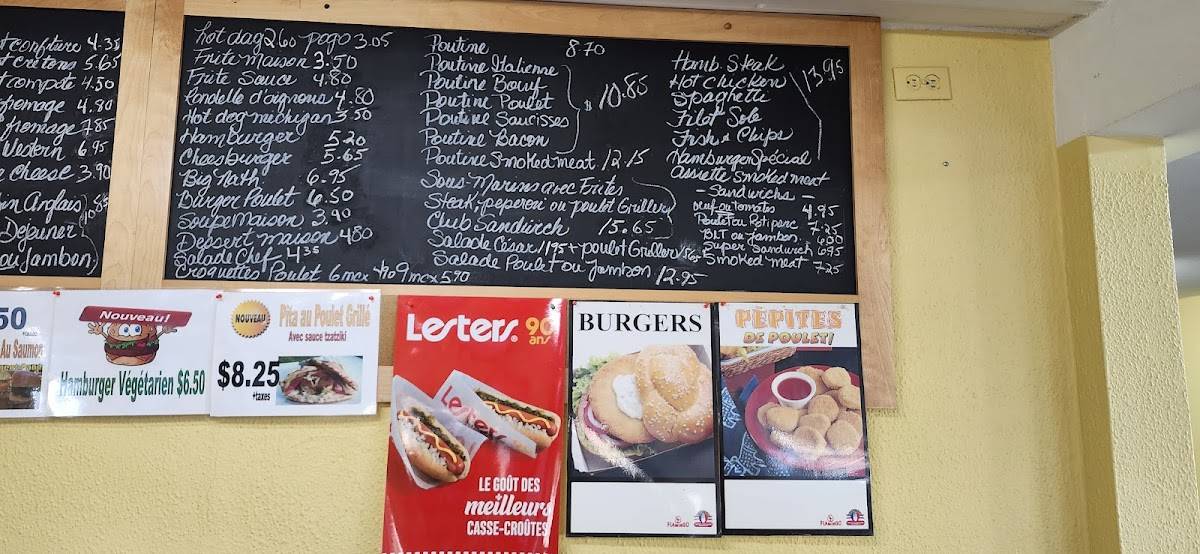 confiture 4.35
cretons 5.65
compote 4.50
fromage 4.90
fromage 7.85
Western 6.95
cheese 3.90
Anglais
Dejeuner
ou Jambon)
hot dog 2.60 pogo 3.05
Frite maison 3.50
Frite Sauce 4.80
Rondelle d'oignons 4.80
Hot dog michigan 3.50
Hamburger 5.20
Cheesburger 5.65
Big Nath 6.95
Burger Poulet 6.50
Soupe maison 3.90
Dessert maison 4.80
Salade Chef 4.35
Croquettes Poulet 6 mcx 4.40 9 mcx 5.90
Poutine 8.70
Poutine Italienne
Poutine Bœuf
Poutine Poulet
Poutine Saucisses
Poutine Bacon
$ 10.85
Poutine Smoked meat 12.15
Sous-Marins avec Frites
Steak, peperoni ou poulet Grillery
Club Sandwich 15.65
Salade César 11.95 + poulet Griller
Salade Poulet ou Jambon 12.95
Hamb. Steak
Hot chicken
Spaghetti
Filet Sole
Fish & Chips
Hamburger Spécial
13.95
assiette Smoked meat
- Sandwichs -
oeuf ou Tomates 4.95
Poulet ou Roti porc 7.25
BLT ou Jambon 6.00
Super Sandwich 6.95
Smoked meat 7.25
50
Au Saumon
Nouveau!
Hamburger Végétarien $6.50
NOUVEAU
Pita au Poulet Grillé
Avec sauce tzatziki
$8.25
+taxes
Lesters. 90
ans
Lesters
LE GOÛT DES
meilleurs
CASSE-CROÛTES
BURGERS
FLAMINGO
PÉPITES
DE POULET!
FLAMINGO